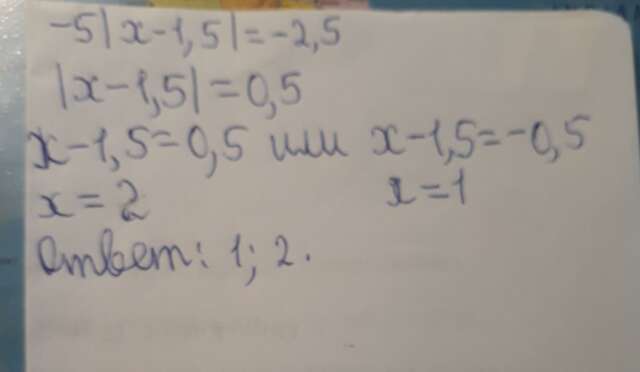 -5|x-1,5|=-2,5
|x-1,5|=0,5
x-1,5=0,5 или x-1,5=-0,5
x=2 x=1
Ответ: 1; 2.